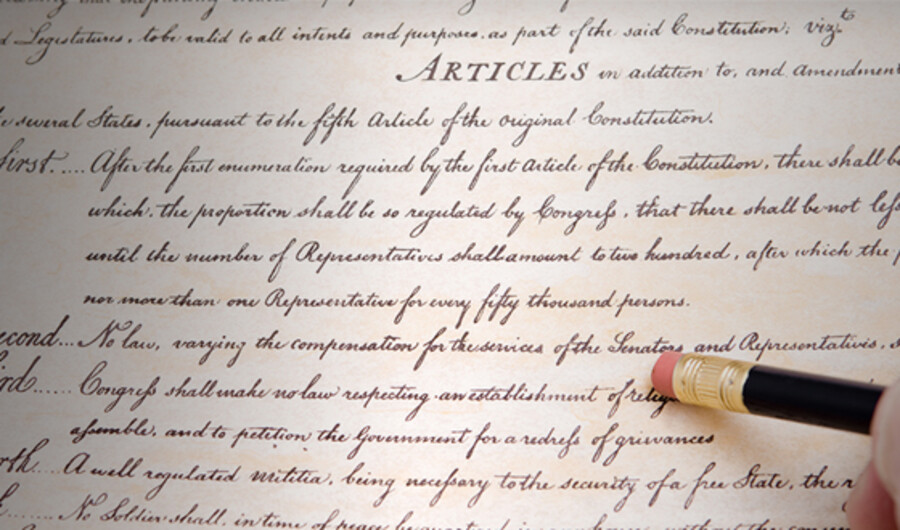 d Legislatures, to be valid to all intents and purposes, as part of the said Constitution; vizt
ARTICLES in addition to, and amendment
e several States, pursuant to the fifth Article of the original Constitution.
first.... After the first enumeration required by the first Article of the Constitution, there shall be
which, the proportion shall be so regulated by Congress, that there shall be not less
until the number of Representatives shall amount to two hundred, after which the p
nor more than one Representative for every fifty thousand persons.
econd... No law, varying the compensation for the services of the Senators and Representatives, s
ird...... Congress shall make no law respecting an establishment of relig
assemble, and to petition the Government for a redress of grievances
rth.... A well regulated militia, being necessary to the security of a free State, the r
No Soldier shall, in time of peace be quartered in any house, without the consen